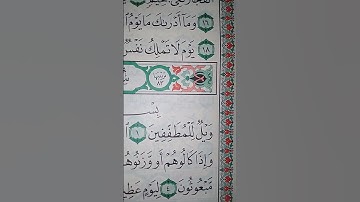 ١٦ وَمَآ أَدْرَىٰكَ مَا يَوْمُ
١٨ يَوْمَ لَا تَمْلِكُ نَفْسٌ
٨٣
بِسْـ
وَيْلٌ لِّلْمُطَفِّفِينَ ١
وَإِذَا كَالُوهُمْ أَو وَّزَنُوهُمْ
مَّبْعُوثُونَ ٤ لِيَوْمٍ عَظِيمٍ